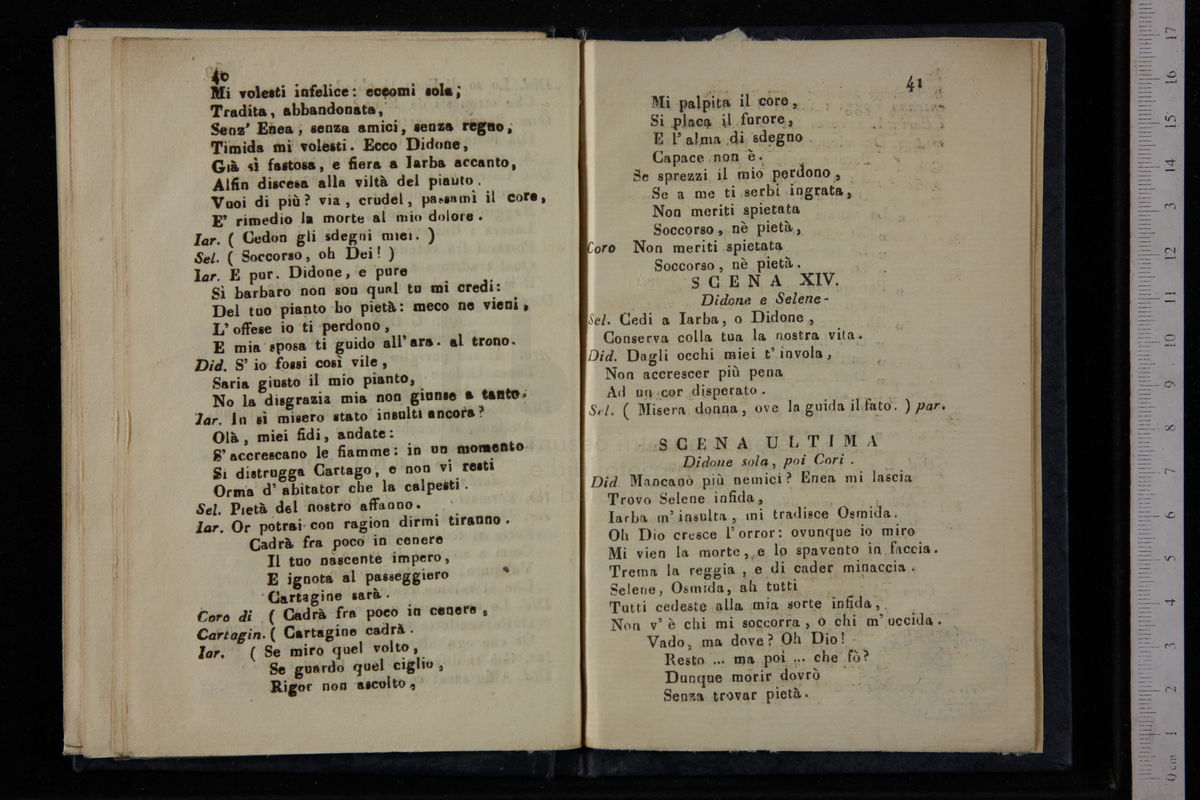 40
Mi volesti infelice: eccomi sola;
Tradita, abbandonata,
Senz' Enea, senza amici, senza regno,
Timida mi volesti. Ecco Didone,
Già sì fastosa, e fiera a Iarba accanto,
Alfin discesa alla viltà del pianto.
Vuoi di più? via, crudel, passami il core,
E' rimedio la morte al mio dolore.
Iar. ( Cedon gli sdegni miei. )
Sel. ( Soccorso, oh Dei! )
Iar. E pur. Didone, e pure
Sì barbaro non son qual tu mi credi:
Del tuo pianto ho pietà: meco ne vieni,
L' offese io ti perdono,
E mia sposa ti guido all' ara. al trono.
Did. S' io fossi così vile,
Saria giusto il mio pianto,
No la disgrazia mia non giunse a tanto.
Iar. In sì misero stato insulti ancora?
Olà, miei fidi, andate:
S' accrescano le fiamme: in un momento
Si distrugga Cartago, e non vi resti
Orma d' abitator che la calpesti.
Sel. Pietà del nostro affanno.
Iar. Or potrai con ragion dirmi tiranno.
Cadrà fra poco in cenere
Il tuo nascente impero,
E ignota al passeggiero
Cartagine sarà.
Coro di ( Cadrà fra poco in cenere,
Cartagin. ( Cartagine cadrà.
Iar. ( Se miro quel volto,
Se guardo quel ciglio,
Rigor non ascolto,
41
Mi palpita il core,
Si placa il furore,
E l' alma di sdegno
Capace non è.
Se sprezzi il mio perdono,
Se a me ti serbi ingrata,
Non meriti spietata
Soccorso, nè pietà,
Coro Non meriti spietata
Soccorso, nè pietà.
SCENA XIV.
Didone e Selene-
Sel. Cedi a Iarba, o Didone,
Conserva colla tua la nostra vita.
Did. Dagli occhi miei t' invola,
Non accrescer più pena
Ad un cor disperato.
Sel. ( Misera donna, ove la guida il fato. ) par.
SCENA ULTIMA
Didone sola, poi Cori.
Did. Mancano più nemici? Enea mi lascia
Trovo Selene infida,
Iarba m' insulta, mi tradisce Osmida.
Oh Dio cresce l' orror: ovunque io miro
Mi vien la morte, e lo spavento in faccia.
Trema la reggia, e di cader minaccia.
Selene, Osmida, ah tutti
Tutti cedeste alla mia sorte infida,
Non v' è chi mi soccorra, o chi m' uccida.
Vado, ma dove? Oh Dio!
Resto ... ma poi ... che fò?
Dunque morir dovrò
Senza trovar pietà.
0 cm 1 2 3 4 5 6 7 8 9 10 11 12 13 14 15 16 17